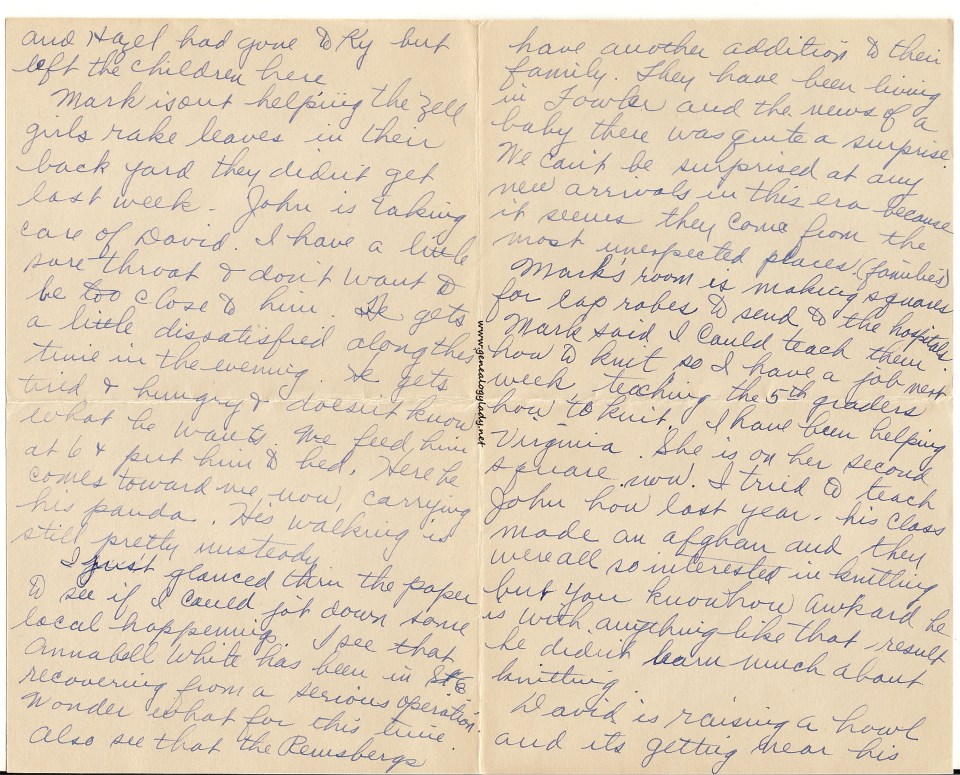 and Hazel had gone to Ky but
left the children here
Mark is out helping the Zell
girls rake leaves in their
back yard they didn't get
last week. John is taking
care of David. I have a little
sore throat & don't want to
be too close to him. He gets
a little dissatisfied along this
time in the evening. He gets
tired & hungry & doesn't know
what he wants. We feed him
at 6 & put him to bed. Here he
comes toward me now, carrying
his panda. His walking is
still pretty unsteady
I just glanced thru the paper
to see if I could jot down some
local happenings. I see that
Annabell White has been in St. E
recovering from a serious operation.
Wonder what for this time.
also see that the Remsbergs
have another addition to their
family. They have been living
in Fowler and the news of a
baby there was quite a surprise
We can't be surprised at any
new arrivals in this era because
it seems they come from the
most unexpected places (families)
Mark's room is making squares
for lap robes to send to the hospitals
Mark said I could teach them
how to knit so I have a job next
week teaching the 5th graders
how to knit. I have been helping
Virginia. She is on her second
square now. I tried to teach
John how last year. his class
made an afghan and they
were all so interested in knitting
but you know how awkard he
is with anything like that result
he didn't learn much about
knitting.
David is raising a howl
and its getting near his
www.genealogylady.net